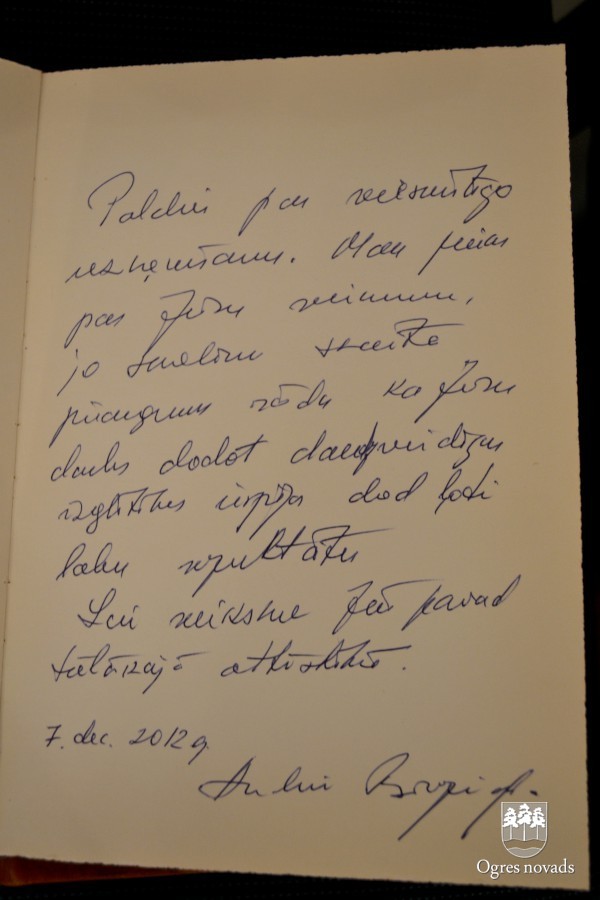 Paldies par viesmīlīgo
uzņemšanu. Man prieks
par Jūsu veikumu,
jo skolēnu skaita
pieaugums rāda ka Jūsu
darbs dodot daudzveidīgas
izglītības iespējas dod ļoti
labu rezultātu
Lai veiksme Jūs pavad
tālākajā attīstībā.
7. dec. 2012 g.
Andris Bērziņš
Ogres novads